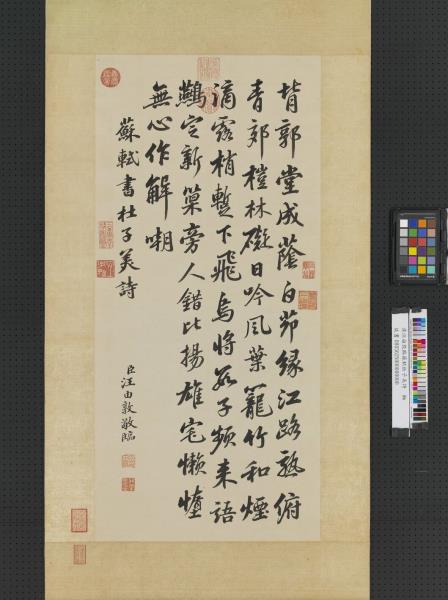 背郭堂成蔭白茆緣江路熟俯
青郊榿林礙日吟風葉籠竹和煙
滴露梢暫下飛烏將數子頻來語
鷰定新巢旁人錯比揚雄宅懶惰
無心作解嘲
蘇軾書杜子美詩
臣汪由敦敬臨